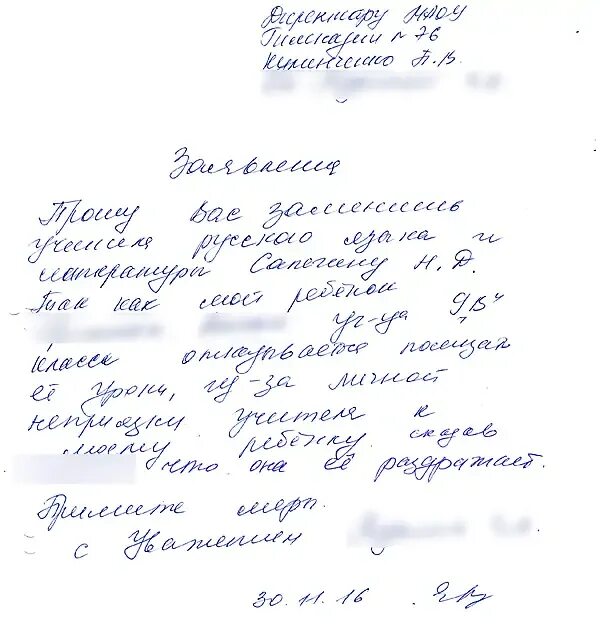 Директору МАОУ
Гимназии № 76
Килинченко П.В.
Заявление
Прошу Вас заменить
учителя русского языка и
литературы Сапегину Н.Д.
Так как мой ребёнок
уч-ца 9"В"
класса отказывается посещать
её уроки, из-за личной
неприязни учителя к
моему ребёнку, сказав
что она её раздражает.
Примите меры.
с Уважением
30.11.16